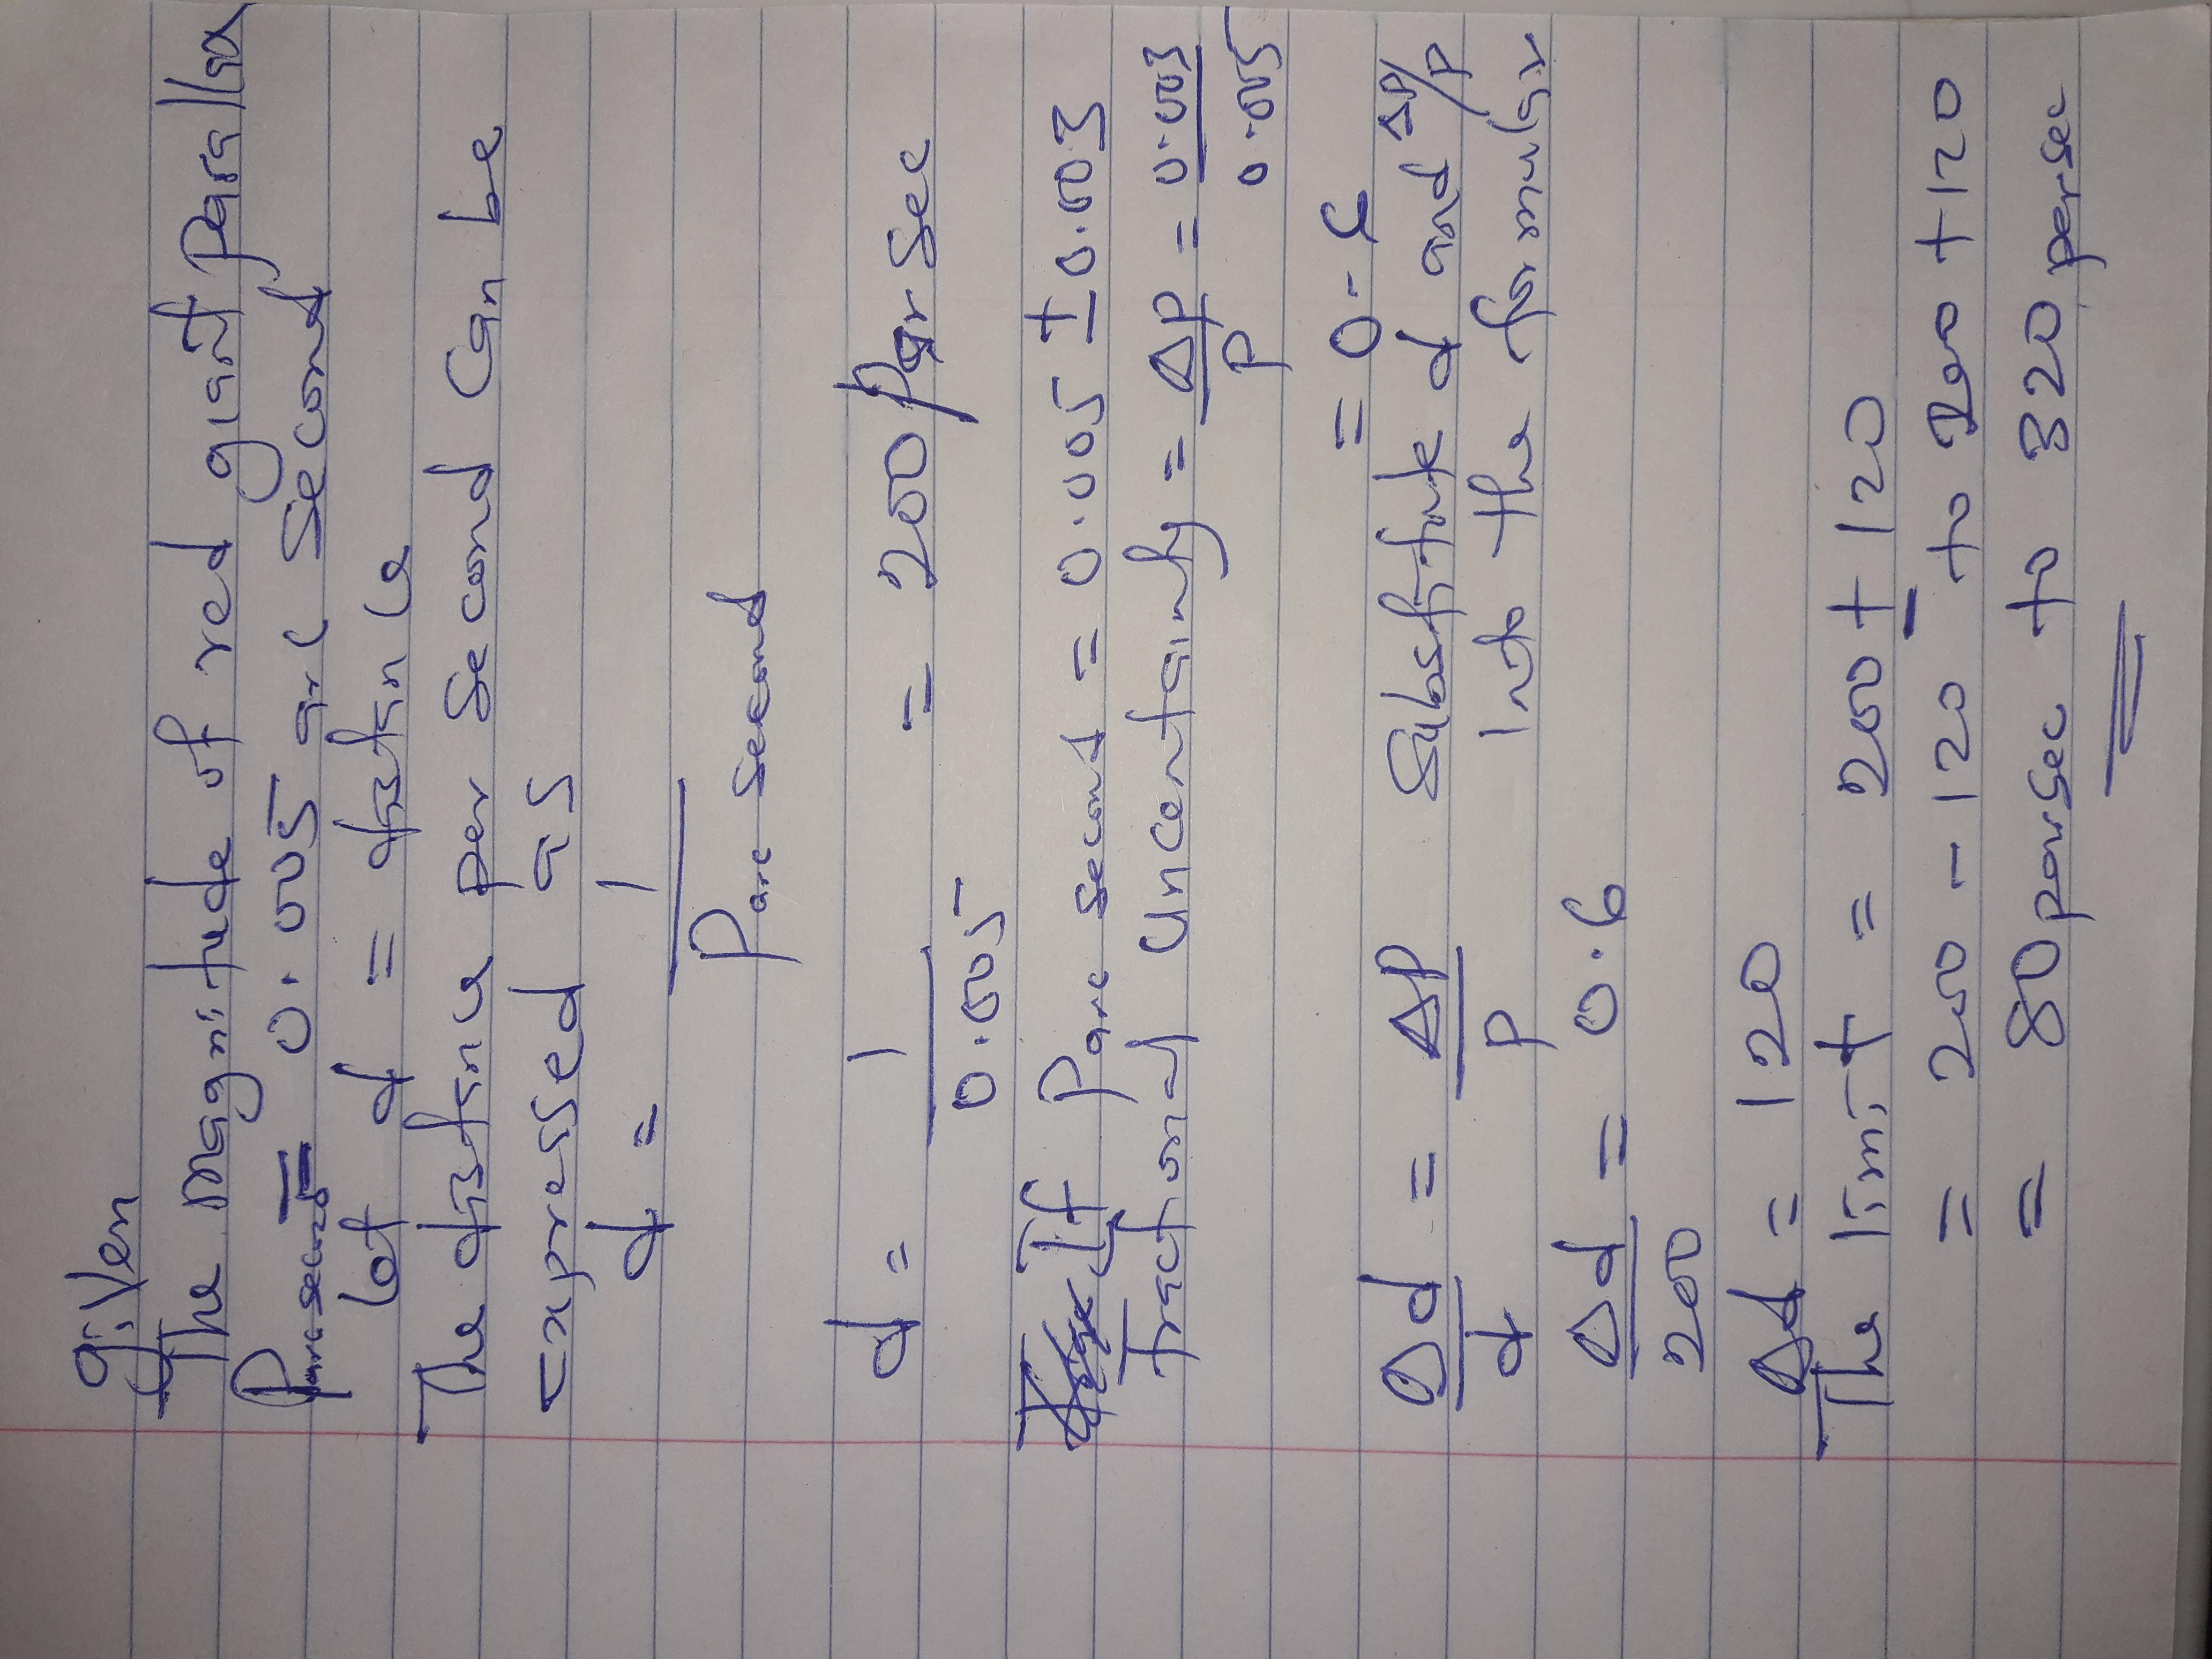 given
The magnitude of red giant Parallax
Parcsecond = 0.005 arc second
let d = distance
The distance per second can be
expressed as
d = 1
Parc second
d = 1 = 200 parsec
0.005
If Parc second = 0.005 ± 0.003
fractional Uncertainty = ΔP = 0.003
P 0.005
= 0.6
Δd = ΔP Substitute d and ΔP/P
d P Into the formular
Δd = 0.6
200
Δd = 120
The limit = 200 ± 120
= 200 - 120 to 200 + 120
= 80 parsec to 320 persec